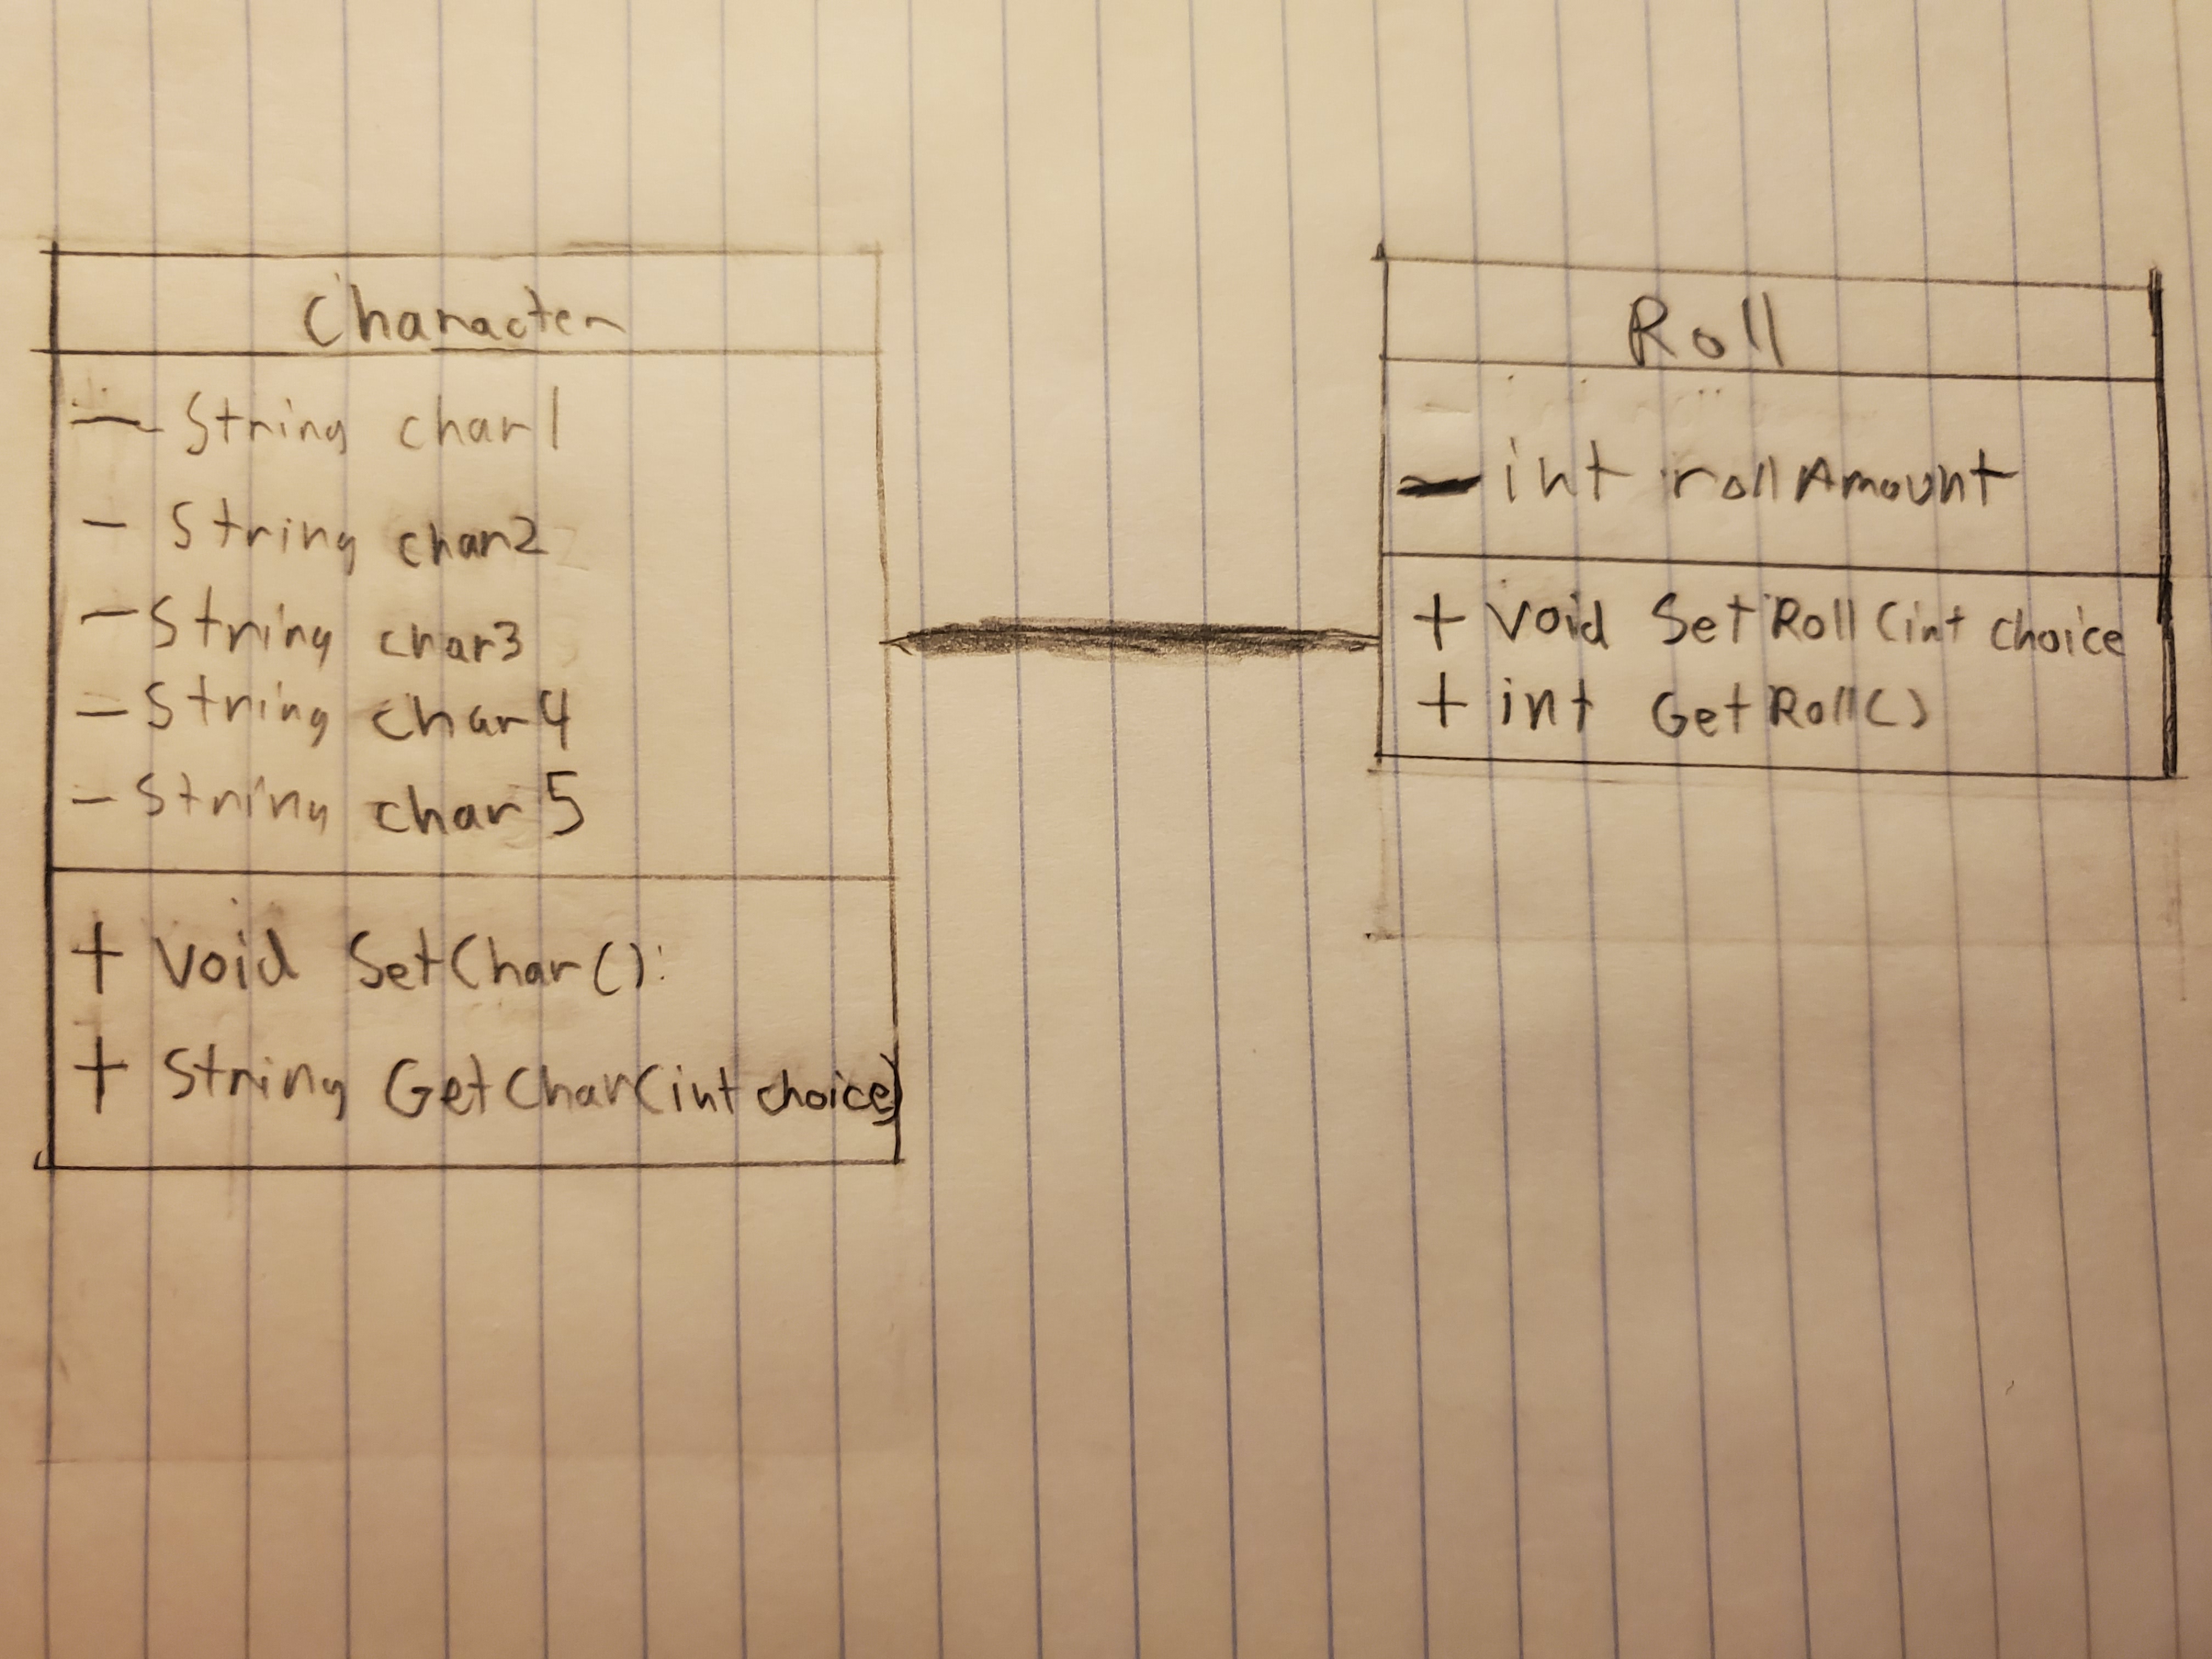 Character
- String char1
- String char2
- String char3
- String char4
- String char5
+ Void SetChar():
+ String GetChar(int choice)
Roll
- int rollAmount
+ Void SetRoll(int choice
+ int GetRoll()